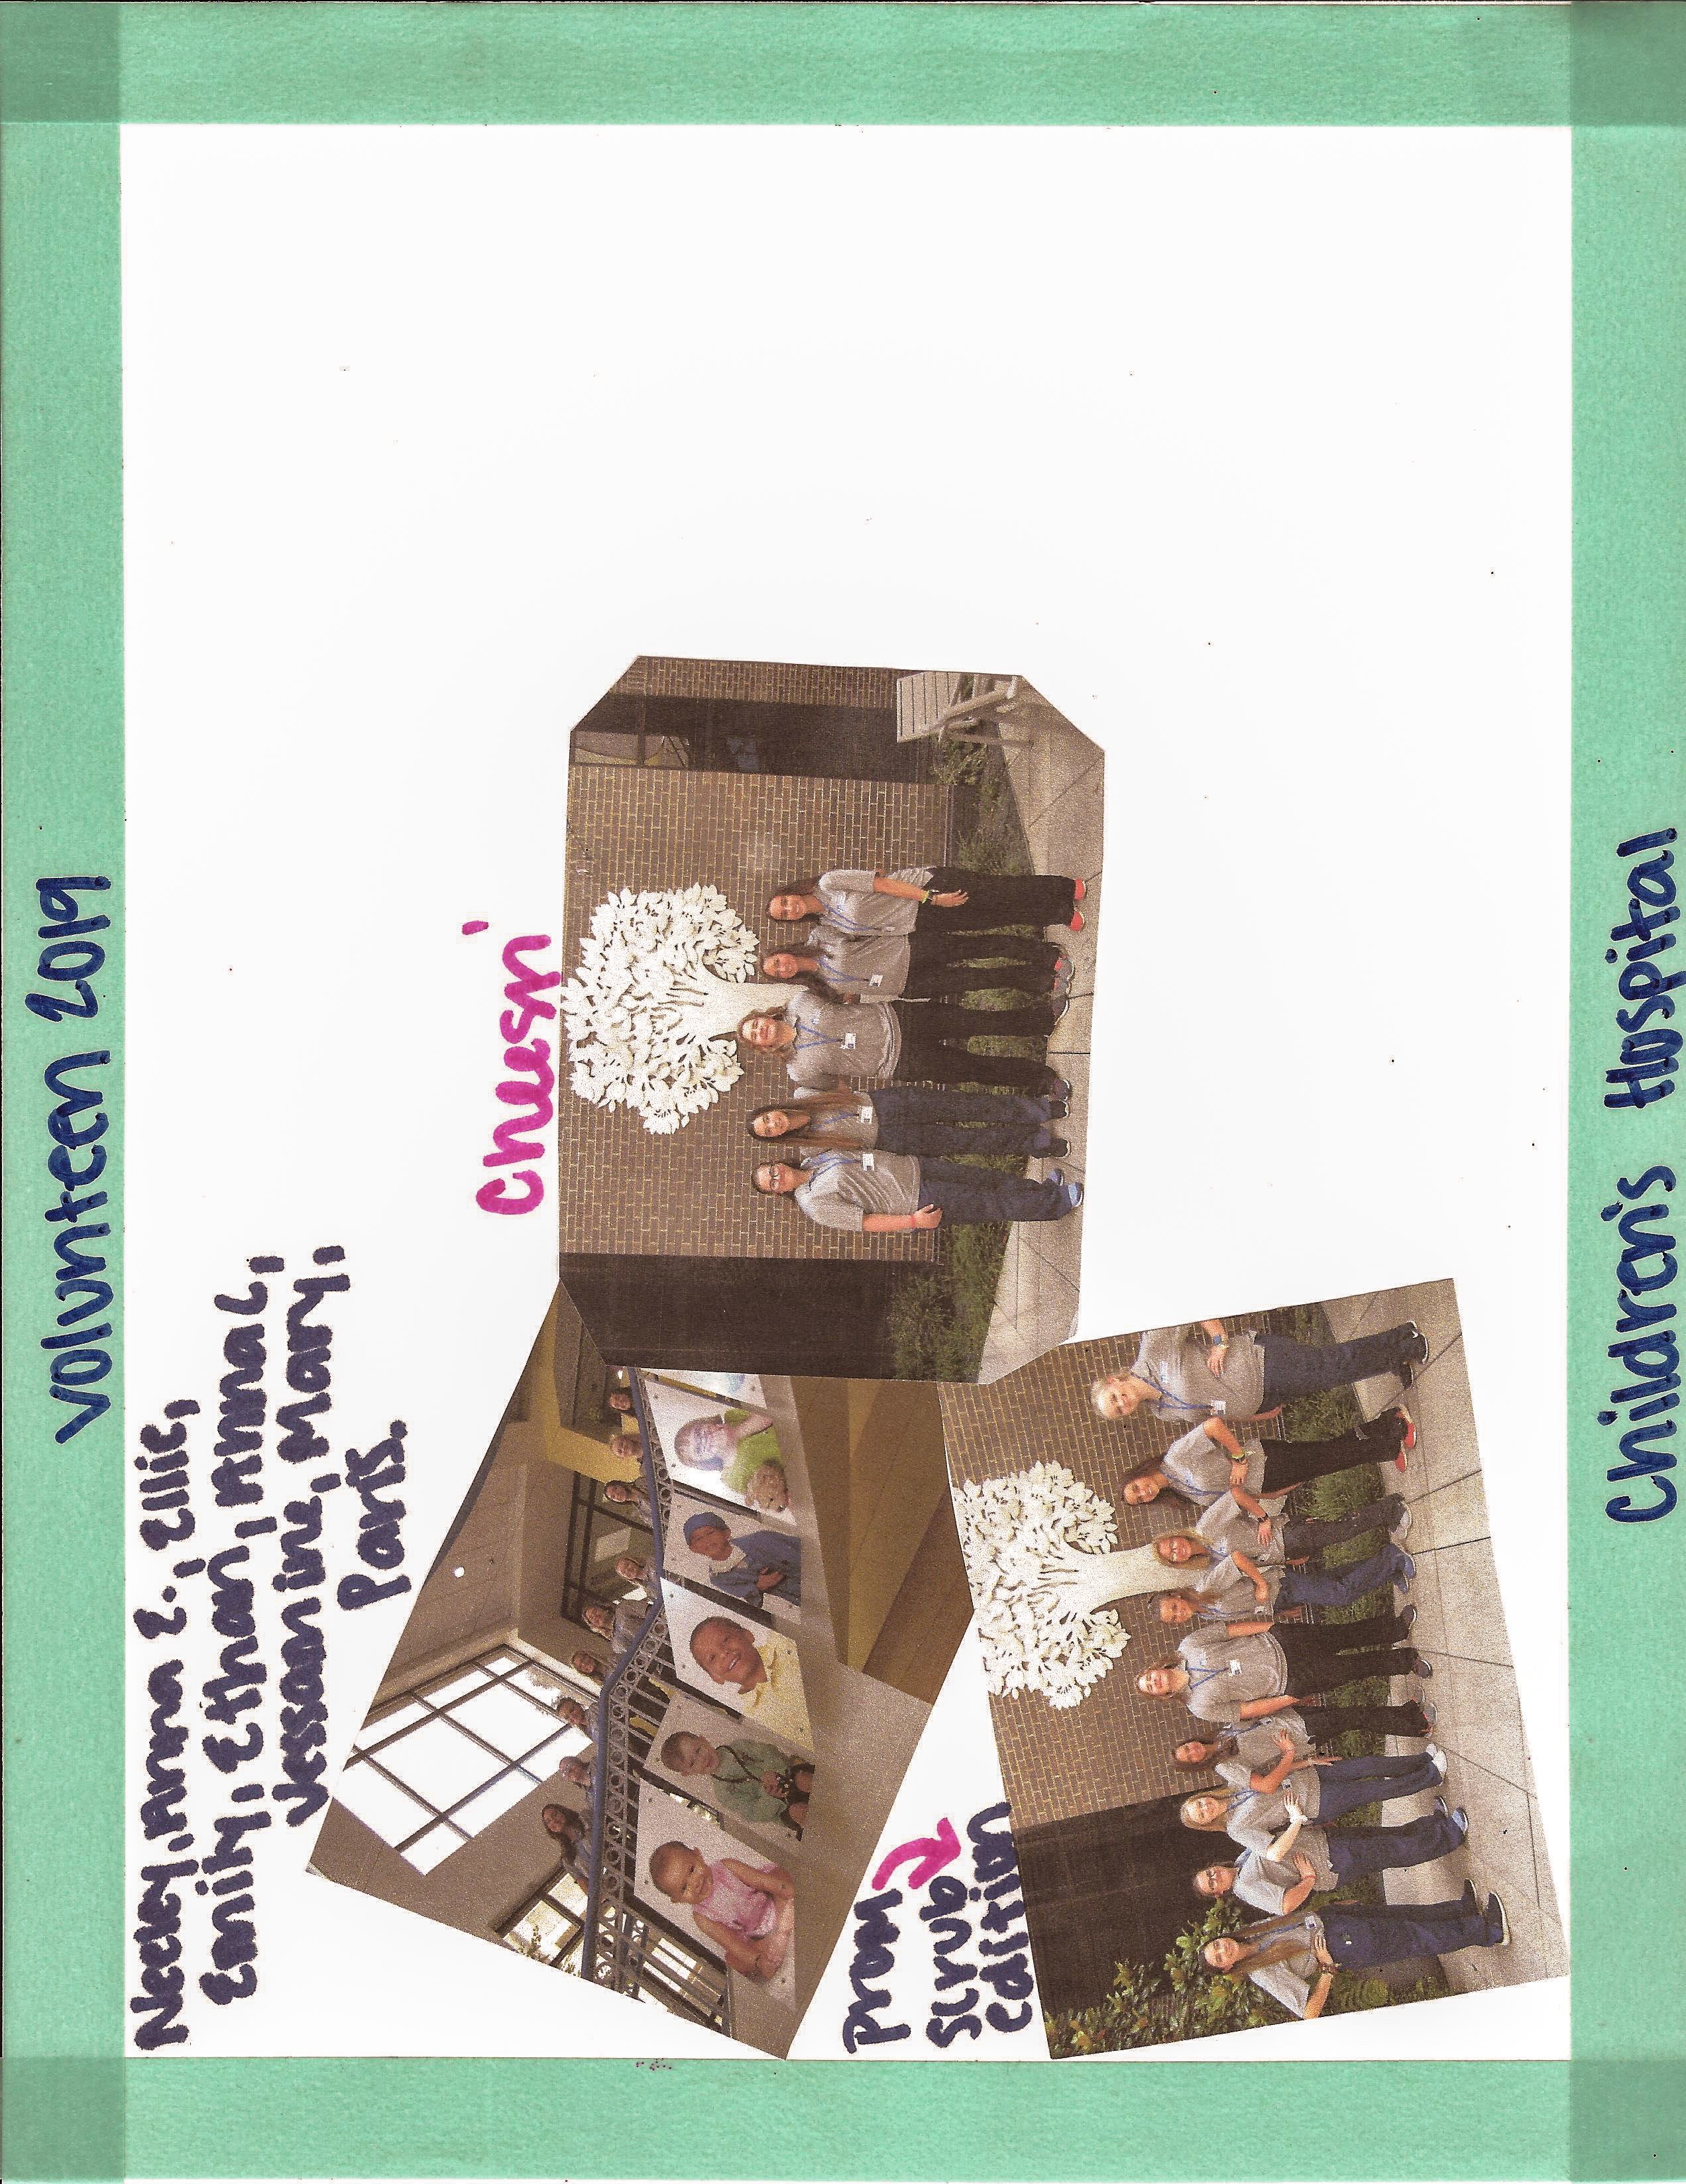 Volunteen 2019
Neeley, Anna E., Ellie,
Emily, Ethan, Anna L,
Jessamine, Mary,
Paris.
Cheesin'
Prom
Scrub
Edition
Children's Hospital